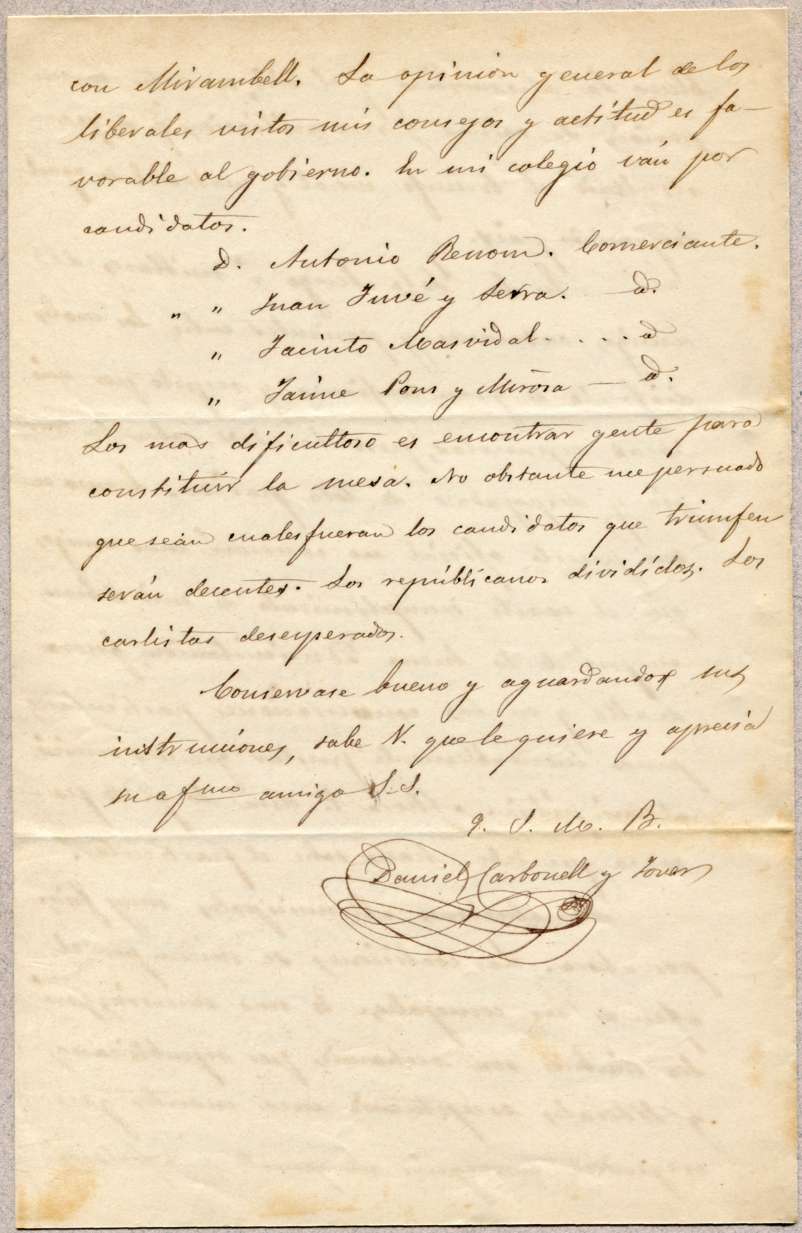 con Mirambell. La opinion general de los
liberales vistos mis consejos y actitud es fa-
vorable al gobierno. En mi colegio ván por
candidatos.
D. Antonio Renom. Comerciante.
" " Juan Juvé y Serra. — d.
" Jacinto Masvidal. . . . . d
" Jaime Pons y Mirosa — d.
Los mas dificultoso es encontrar gente para
constituir la mesa. No obstante me persuado
que sean cuales fueran los candidatos que triunfen
serán decentes. Los repúblicanos divididos. Los
carlistas desesperados.
Conservase bueno y aguardando sus
instrucciones, sabe V. que le quiere y aprecia
su afmo amigo S.S.
q. S. M. B.
Daniel Carbonell y Jover